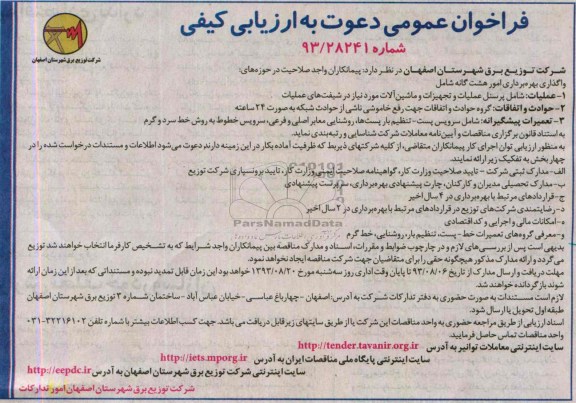 فراخوان عمومی دعوت به ارزیابی کیفی
شماره ۹۳/۲۸۲۴۱
شرکت توزیع برق شهرستان اصفهان
شرکت توزیع برق شهرستان اصفهان در نظر دارد: پیمانکاران واجد صلاحیت در حوزه‌های:
واگذاری بهره‌برداری امور هشت گانه شامل
۱-عملیات: شامل پرسنل عملیات و تجهیزات و ماشین‌آلات مورد نیاز در شیفت‌های عملیات
۲-حوادث و اتفاقات: گروه حوادث و اتفاقات جهت رفع خاموشی ناشی از حوادث شبکه به صورت ۲۴ ساعته
۳-تعمیرات پیشگیرانه: شامل سرویس پست- تنظیم بار پست‌ها، روشنایی معابر اصلی و فرعی، سرویس خطوط به روش خط سرد و گرم
به استناد قانون برگزاری مناقصات و آیین‌نامه معاملات شرکت شناسایی و رتبه‌بندی نماید.
به منظور ارزیابی توان اجرای کار پیمانکاران متقاضی، از کلیه شرکتهای ذیربط که ظرفیت آماده بکار در این زمینه دارند دعوت می‌شود اطلاعات و مستندات درخواست شده را در
چهار بخش به تفکیک زیر ارائه نمایند.
الف- مدارک ثبتی شرکت - تایید صلاحیت وزارت کار، گواهینامه صلاحیت ایمنی وزارت کار، تایید برونسپاری شرکت توزیع
ب- مدارک تحصیلی مدیران و کارکنان، چارت پیشنهادی بهره‌برداری، سرپرست پیشنهادی
ج- قراردادهای مرتبط با بهره‌برداری در ۴ سال اخیر
د- رضایتمندی شرکت‌های توزیع در قراردادهای مرتبط با بهره‌برداری در ۲ سال اخیر
ه- امکانات مالی و اجرایی و کد اقتصادی
و- معرفی گروه‌های تعمیرات خط - پست، تنظیم بار، روشنایی، خط گرم
بدیهی است پس از بررسی‌های لازم و در چارچوب ضوابط و مقررات، اسناد و مدارک مناقصه بین پیمانکاران واجد شرایط که به تشخیص کارفرما انتخاب خواهند شد توزیع
می‌گردد و ارائه مدارک مذکور هیچگونه حقی را برای متقاضیان جهت شرکت در مناقصه ایجاد نخواهد نمود.
مهلت دریافت و ارسال مدارک از تاریخ ۹۳/۰۸/۰۶ تا پایان وقت اداری روز سه‌شنبه مورخ ۱۳۹۳/۰۸/۲۰ خواهد بود این زمان قابل تمدید نبوده و مستنداتی که بعد از این زمان ارائه
شوند باز گردانده خواهند شد.
لازم است مستندات به صورت حضوری به دفتر تدارکات شرکت به آدرس: اصفهان - چهارباغ عباسی - خیابان عباس آباد - ساختمان شماره ۳ توزیع برق شهرستان اصفهان
طبقه اول تحویل یا ارسال شود.
اسناد ارزیابی از طریق مراجعه حضوری به واحد مناقصات این شرکت یا از طریق سایتهای زیر قابل دریافت می باشد. جهت کسب اطلاعات بیشتر با شماره تلفن ۳۲۲۱۶۱۰۲-۰۳۱
واحد مناقصات تماس حاصل فرمایید.
سایت اینترنتی معاملات توانیر به آدرس http://tender.tavanir.org.ir
سایت اینترنتی پایگاه ملی مناقصات ایران به آدرس http://iets.mporg.ir
سایت اینترنتی شرکت توزیع برق شهرستان اصفهان به آدرس http://eepdc.ir
شرکت توزیع برق شهرستان اصفهان امور تدارکات
ParsNamadData